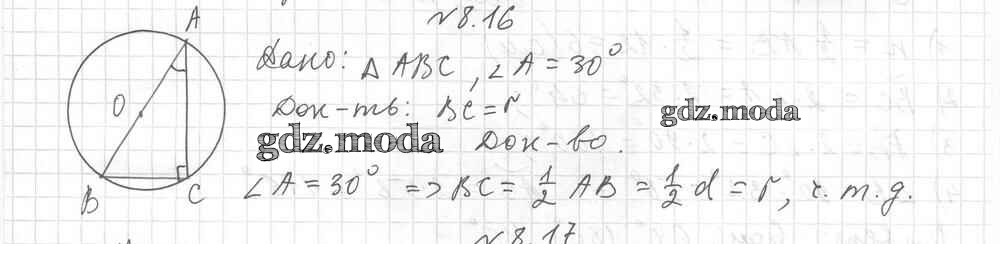 №8.16
A
Дано: △ABC, ∠A = 30°
O
Док-ть: BC = r
gdz.moda
gdz.moda
Док-во.
∠A = 30° => BC = 1/2 AB = 1/2 d = r, ч.т.д.
B
C
№8.17